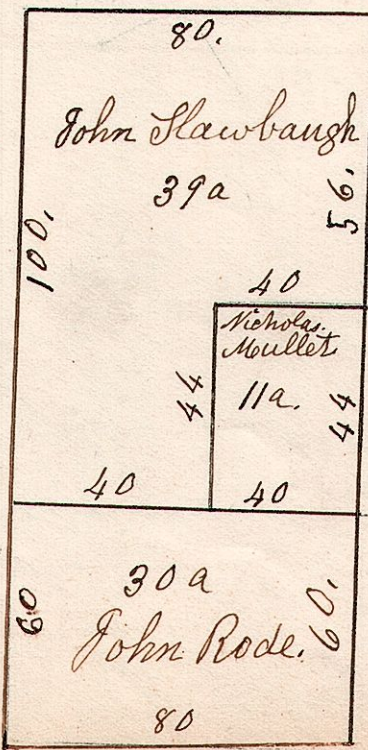 80.
John Slawbaugh
39a
100.
56.
40
Nicholas.
Mullet
11a.
44
44
40
40
30a
60
60.
John Rode.
80